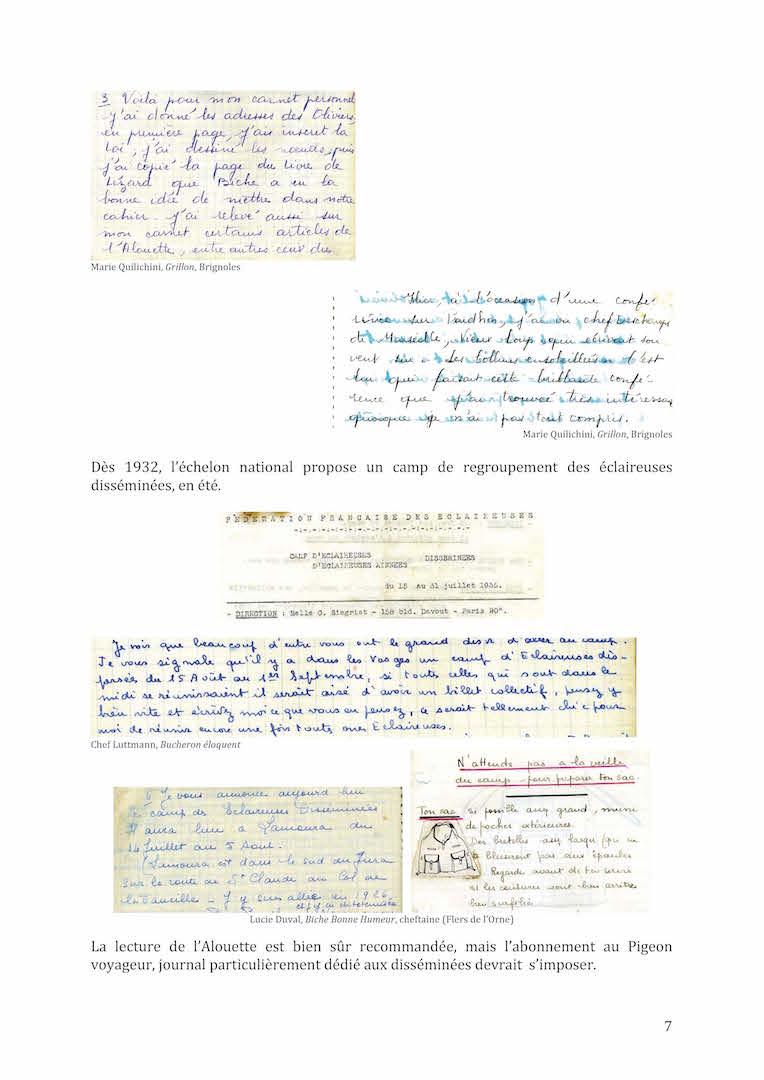 3 Voilà pour mon carnet personnel
j'ai donné les adresses des Oliviers
en première page, j'ais inscrit la
loi, j'ai dessiné les noeuds, puis
j'ai copié la page du Livre de
Lézard que Biche a eu la
bonne idée de mettre dans notre
cahier. J'ai relevé aussi sur
mon carnet certains articles de
l'Alouette, entre autres ceux du
Marie Quilichini, Grillon, Brignoles
Hier, à l'occasion d'une confé-
rence sur j'ai vu chef Deschamps
de Marseille, Vieux Loup qui écrivait sou-
vent sur Les Colliers C'est
lui qui faisait cette brillante confé-
rence que j'ai trouvée très intéressan
quoique je n'ai pas tout compris.
Marie Quilichini, Grillon, Brignoles
Dès 1932, l'échelon national propose un camp de regroupement des éclaireuses
disséminées, en été.
FEDERATION FRANCAISE DES ECLAIREUSES
CAMP D'ECLAIREUSES DISSEMINEES
D'ECLAIREUSES AINEES
du 15 au 31 juillet 1935.
- DIRECTION : Melle G. Siegrist - 158 bld. Davout - Paris 20°.
Je vois que beaucoup d'entre vous ont le grand désir d'aller au camp.
Je vous signale qu'il y a dans les Vosges un camp d'Eclaireuses dis-
persées du 15 Août au 1er Septembre, si toutes celles qui sont dans le
midi se réunissaient il serait aisé d'avoir un billet collectif, pensez y
bien vite et écrivez moi ce que vous en pensez, ce serait tellement chic pour
moi de réunir encore une fois toutes mes Eclaireuses.
Chef Luttmann, Bucheron éloquent
N'attends pas à la veille
du camp pour préparer ton sac.
Ton sac si possible assez grand, muni
de poches extérieures.
Des bretelles assez larges (qui ne
blesseront pas aux épaules
Regarde avant de t'en servir
si les coutures sont bien arrêtées
bien
6 Je vous annonce aujourd hui
le camp des Eclaireuses Disséminées
aura lieu à Lamoura du
14 Juillet au 5 Aout.
(Lamoura est dans le sud du Jura
sur la route de St Claude au Col de
la Faucille - J'y suis allée en 1926,
Lucie Duval, Biche Bonne Humeur, cheftaine (Flers de l'Orne)
La lecture de l'Alouette est bien sûr recommandée, mais l'abonnement au Pigeon
voyageur, journal particulièrement dédié aux disséminées devrait s'imposer.
7